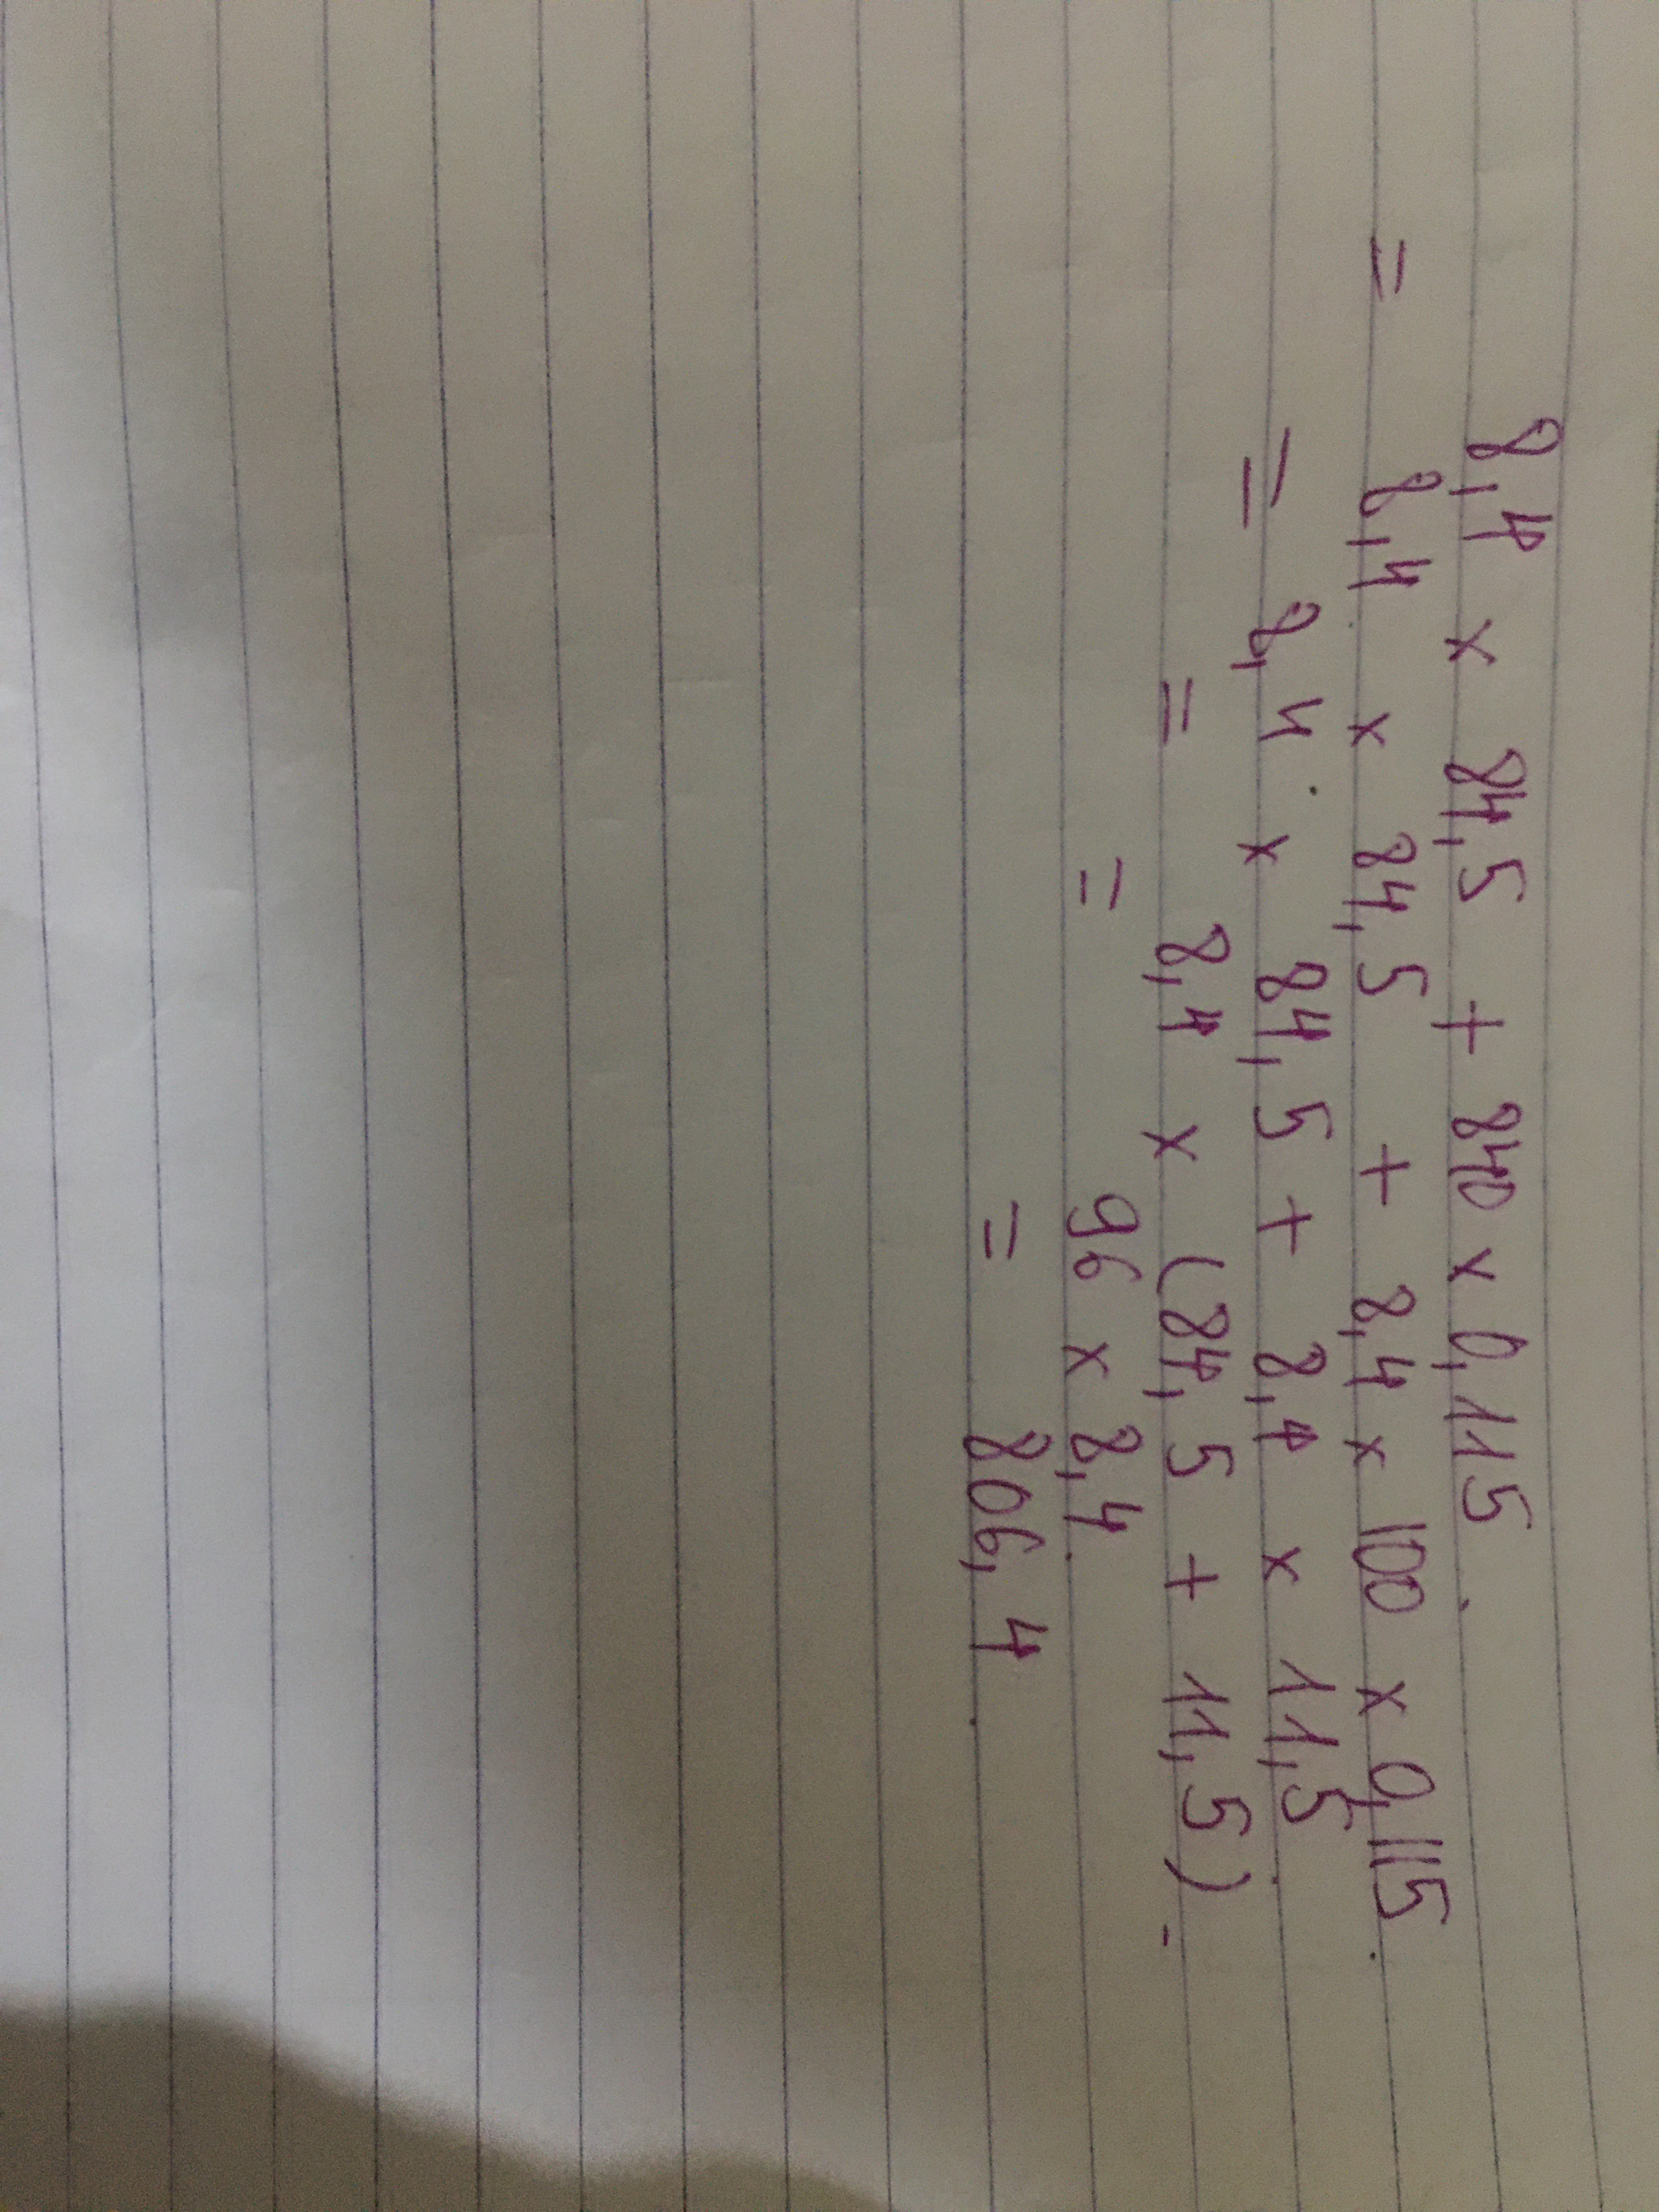 8,4 x 84,5 + 840 x 0,115
= 8,4 x 84,5 + 8,4 x 100 x 0,115
= 8,4 x 84,5 + 8,4 x 11,5
= 8,4 x (84,5 + 11,5)
= 96 x 8,4
= 806,4